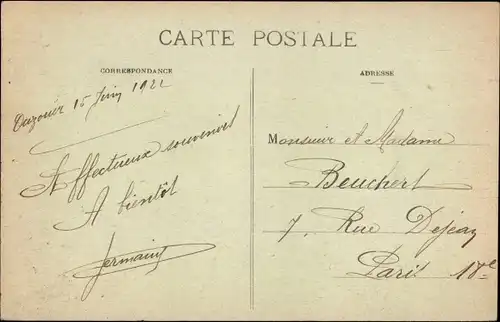 CARTE POSTALE
CORRESPONDANCE
Ouzouër 15 Juin 1922
Affectueux souvenirs
A bientôt
Germaine
ADRESSE
Monsieur et Madame
Beuchert
7, Rue Dejean
Paris 18e